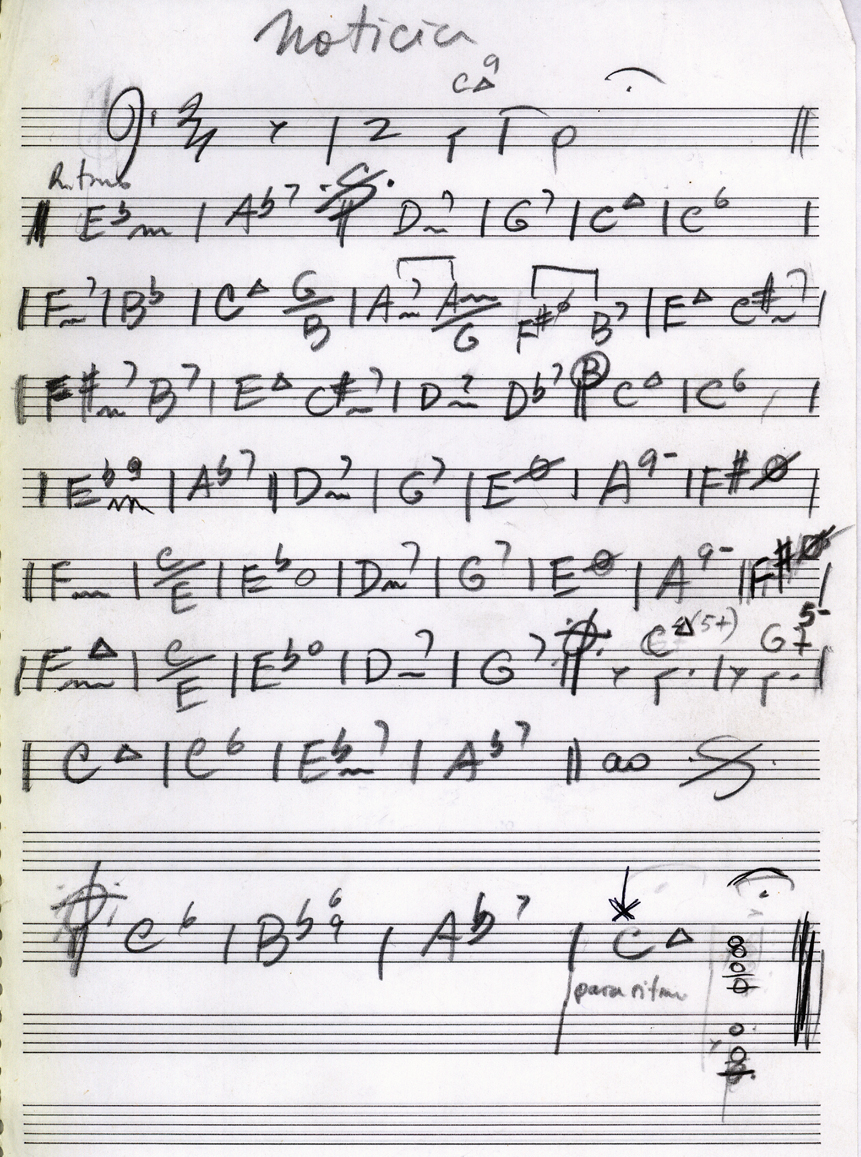 Noticia
C△9
2
Ritmo
Ebm | Ab7 Dm7 | G7 | C△ | C6 |
| Fm7 | Bb | C△ G/B | Am7 Am/G F#ø B7 | E△ C#m7 |
F#m7 B7 | E△ C#m7 | Dm7 Db7 || B C△ | C6 |
| Ebm9 | Ab7 || Dm7 | G7 | Eø | A9- | F#ø |
|| Fm | C/E | Ebo | Dm7 | G7 | Eø | A9- || F#ø |
| Fm△ | C/E | Ebo | Dm7 | G7 || C△(5+) | G7 5- |
|| C△ | C6 | Ebm7 | Ab7 || ao
C6 | Bb6 9 | Ab7 | C△
para ritmo